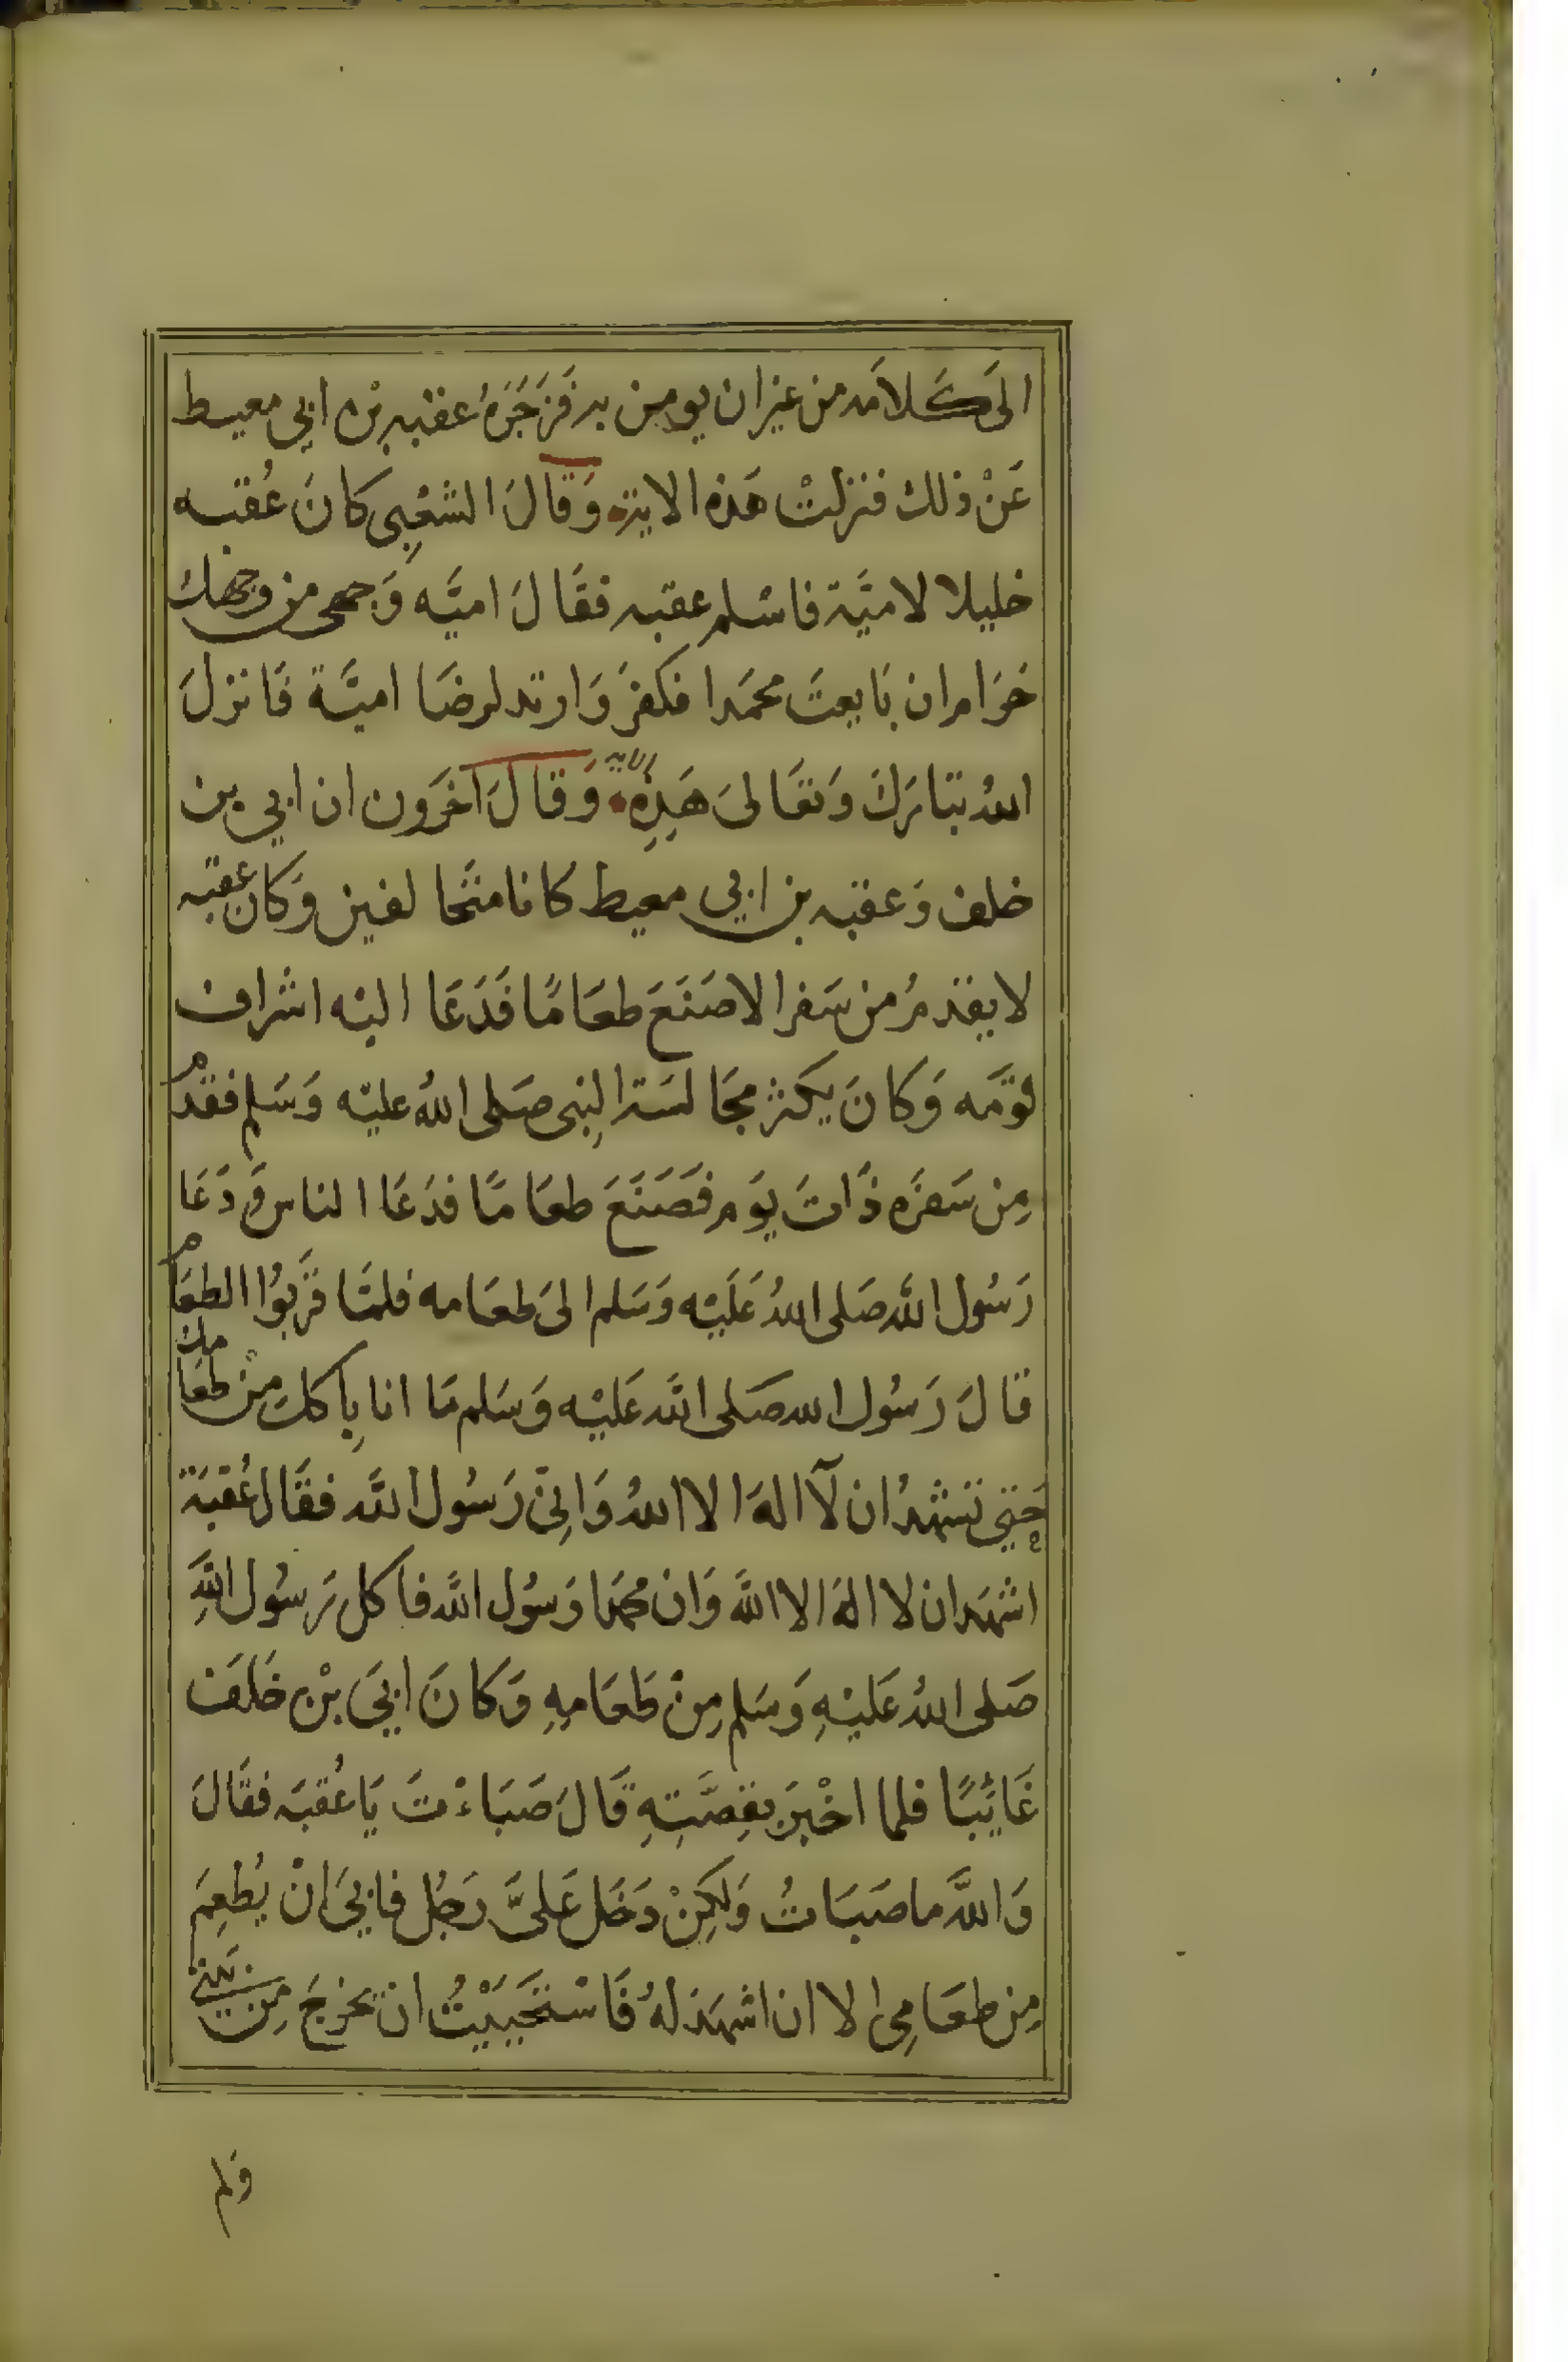 الىَ كَلامَه من غيران يومن به فزَجَرَهُ عقبه بْن ابي معيط
عَنْ ذلك فنزلتْ هَذه الاية وَقَالَ الشعْبِى كانَ عُقبه
خليلا لاميَّة فاسْلم عقبه فقَالَ اميَّه وَجهى من وجهك
حَرَامران بَايعتَ محمَدا فكفرَ وَارتد لرضَا اميَّة فَانزلَ
اللهُ تبَارَكَ وَتعَالىَ هَذِه الايه وَقَالَ اخَرَون ان ابي بن
خلف وَعقبه بن ابي معيط كانا متحَا لفين وَكان عقبه
لا يقدمُ من سَفر الا صَنَعَ طعَامًا فدَعَا اليْه اشراف
قومَه وَكانَ يكثر مجَالسَة النبِى صَلى اللهُ عليْه وَسَلم فقدم
مِن سَفرَه ذَاتَ يَوم فصَنَعَ طعَامًا فدَعَا الناس وَدَعَا
رَسُول الله صَلى اللهُ عَليْه وَسَلم الىَ طعَامه فلمَّا قرَّبوُا الطعَام
قالَ رَسُول الله صَلى الله عَليْه وَسَلم مَا انا بِاكلِ مِنْ طعَامك
حَتى تشهدُ ان لآ الهَ الا اللهُ وَانِىّ رَسُول الله فقَال عُقبَة
اشهَد ان لا الهَ الا اللهَ وَان محمَدا رَسُول الله فاكل رَسُول اللهِ
صَلى اللهُ عَليْهِ وَسَلم مِنْ طعَامِهِ وَكانَ ابيَ بْن خَلفَ
غَائِبًا فلما اخْبرَ بقِصَّتِهِ قَالَ صَبَاءْتَ يَا عُقبَه فقَالَ
وَاللهَ ما صَبَاتُ وَلكِنْ دَخَل عَلىَّ رَجُل فابيَ انْ يُطعِمَ
مِن طعَامِى الا ان اشهَد لهُ فَاسْتحَيَيْتُ ان يخرجَ مِن بَيتى
وَلم